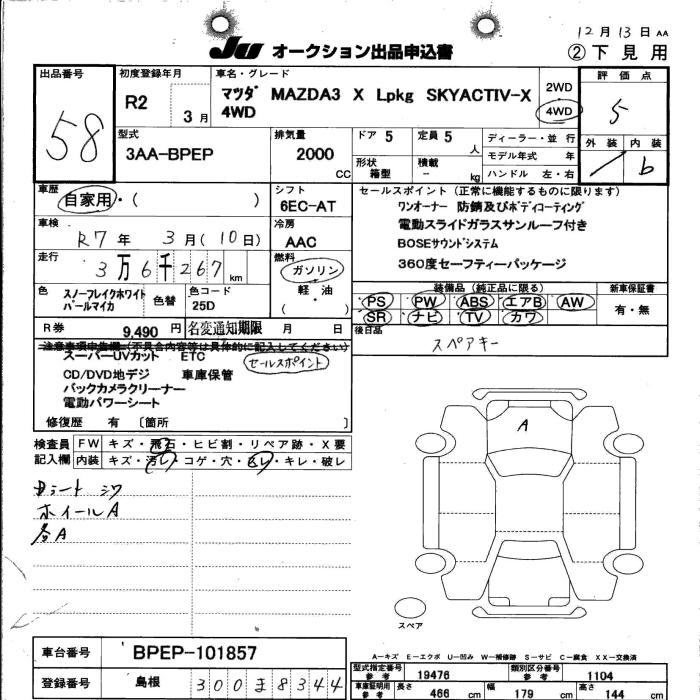 12月13日 AA
JU オークション出品申込書 ②下見用
出品番号 58
初度登録年月 R2 3月
車名・グレード マツダ MAZDA3 X Lpkg SKYACTIV-X 4WD
2WD
4WD
評価点 5
外装 内装 b
型式 3AA-BPEP
排気量 2000 cc
ドア 5 定員 5人
形状 箱型 積載 - kg
ディーラー・並行
モデル年式 年
ハンドル 左・右
車歴 自家用・( )
シフト 6EC-AT
車検 R7年 3月(10日)
冷房 AAC
走行 3万6千267km
燃料 ガソリン 軽・油 ( )
色 スノーフレイクホワイトパールマイカ
色替
色コード 25D
R券 9,490円 名変通知期限 月 日
セールスポイント (正常に機能するものに限ります)
ワンオーナー 防錆及びボディコーティング
電動スライドガラスサンルーフ付き
BOSEサウンドシステム
360度セーフティーパッケージ
装備品(純正品に限る) 新車保証書
PS PW ABS エアB AW 有・無
SR ナビ TV カワ
後日品 スペアキー
注意事項申告欄(不具合内容等は具体的に記入してください)
スーパーUVカット ETC セールスポイント
CD/DVD地デジ 車庫保管
バックカメラクリーナー
電動パワーシート
修復歴 有 〔箇所 〕
検査員記入欄 FW キズ・飛石・ヒビ割・リペア跡・X要
内装 キズ・汚レ・コゲ・穴・スレ・キレ・破レ
シワ
ホイールA
各A
A
スペア
A-キズ E-エクボ U-凹み W-補修跡 S-サビ C-腐食 XX-交換済
車台番号 BPEP-101857
登録番号 島根 300ま8344
型式指定番号 参考 19476 類別区分番号 参考 1104
車庫証明用 参考 長さ 466 cm 幅 179 cm 高さ 144 cm